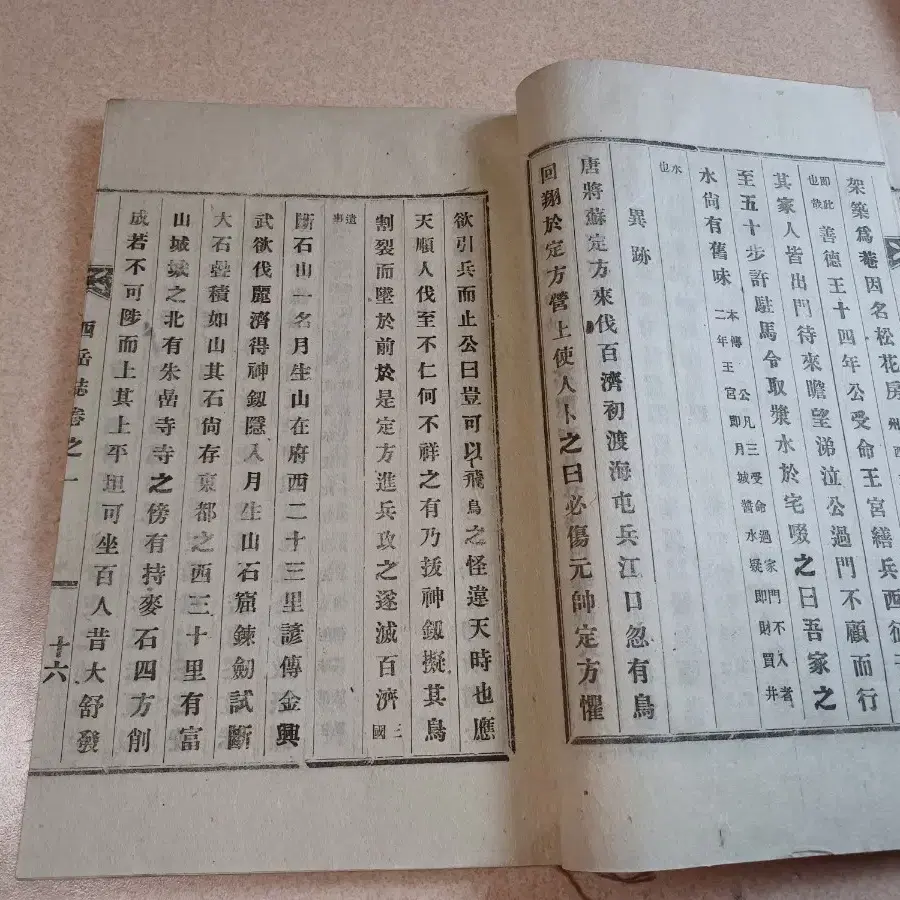 架築爲巷因名松花房
即此也後善德王十四年公受命王宮繕兵西
其家人皆出門待來瞻望涕泣公過門不顧而行
至五十步許駐馬令取漿水於宅啜之曰吾家之
水尙有舊味本傳公凡三受命過家門不入者二年王宮即月城醬水疑即財買井
水也
異跡
唐將蘇定方來伐百濟初渡海屯兵江口忽有鳥
回翔於定方營上使人卜之曰必傷元帥定方懼
欲引兵而止公曰豈可以飛鳥之怪違天時也應
天順人伐至不仁何不祥之有乃拔神釼擬其鳥
割裂而墜於前於是定方進兵攻之遂滅百濟三國
遺事
斷石山一名月生山在府西二十三里諺傳金興
武欲伐麗濟得神釼隱入月生山石窟鍊劒試斷
大石疊積如山其石尙存東都之西三十里有富
山城城之北有朱岳寺寺之傍有持麥石四方削
成若不可陟而上其上平坦可坐百人昔大舒發
西岳誌卷之一
十六